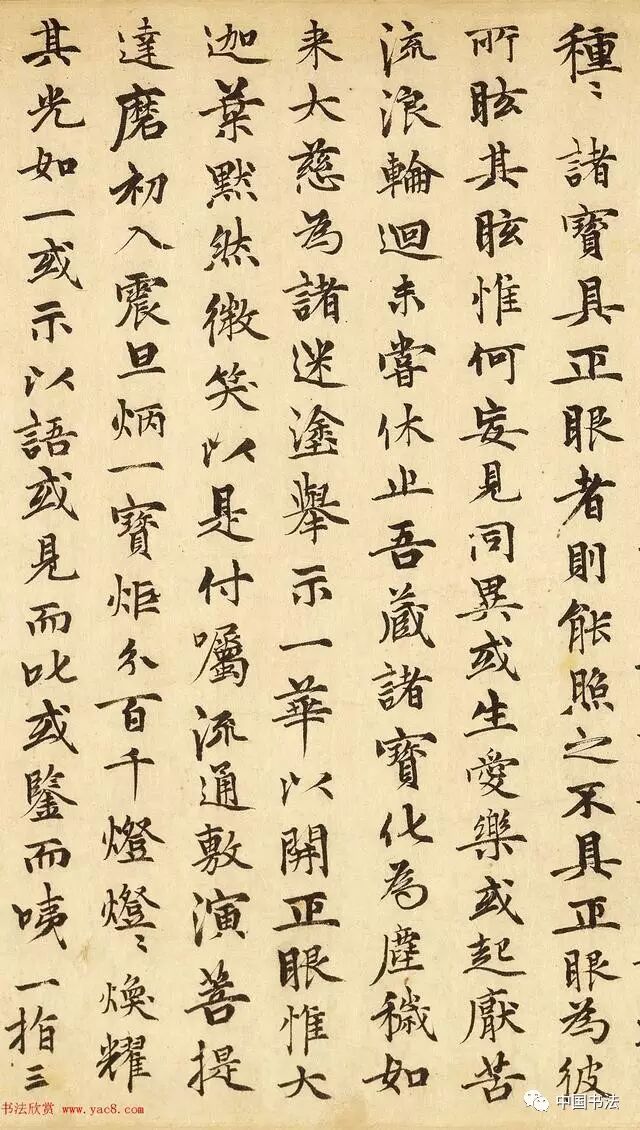 種〻諸寶具正眼者則能照之不具正眼為彼
所眩其眩惟何妄見同異或生愛樂或起厭苦
流浪輪迴未嘗休止吾藏諸寶化為塵穢如
来大慈為諸迷塗舉示一華以開正眼惟大
迦葉默然微笑以是付囑流通敷演菩提
達磨初入震旦炳一寶炬分百千燈燈〻煥耀
其光如一或示以語或見而叱或鑒而咦一指三
书法欣赏 www.yac8.com
中国书法